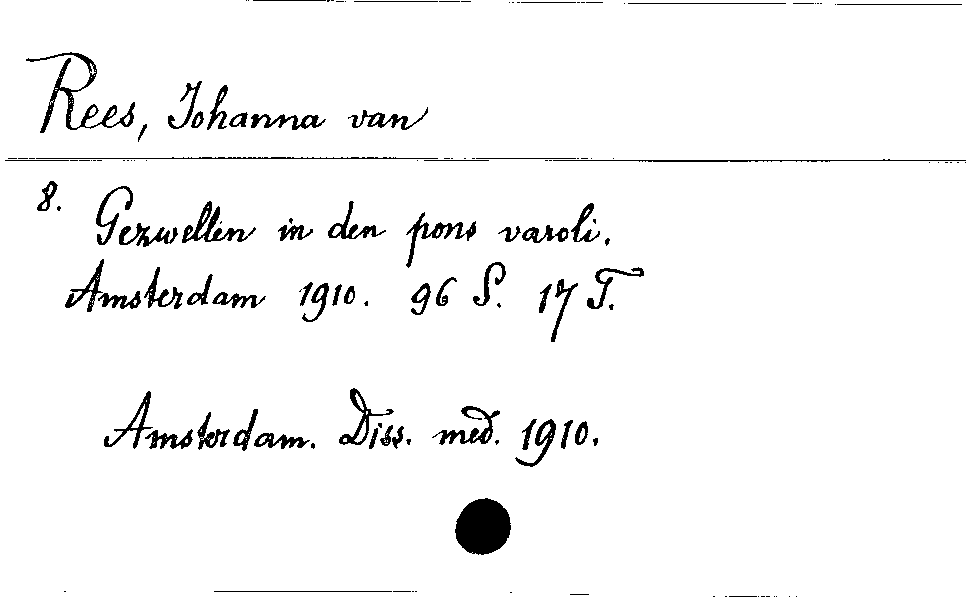 Rees, Johanna van
8. Gezwellen in den pons varoli.
Amsterdam 1910. 96 S. 17 T.
Amsterdam. Diss. med. 1910.